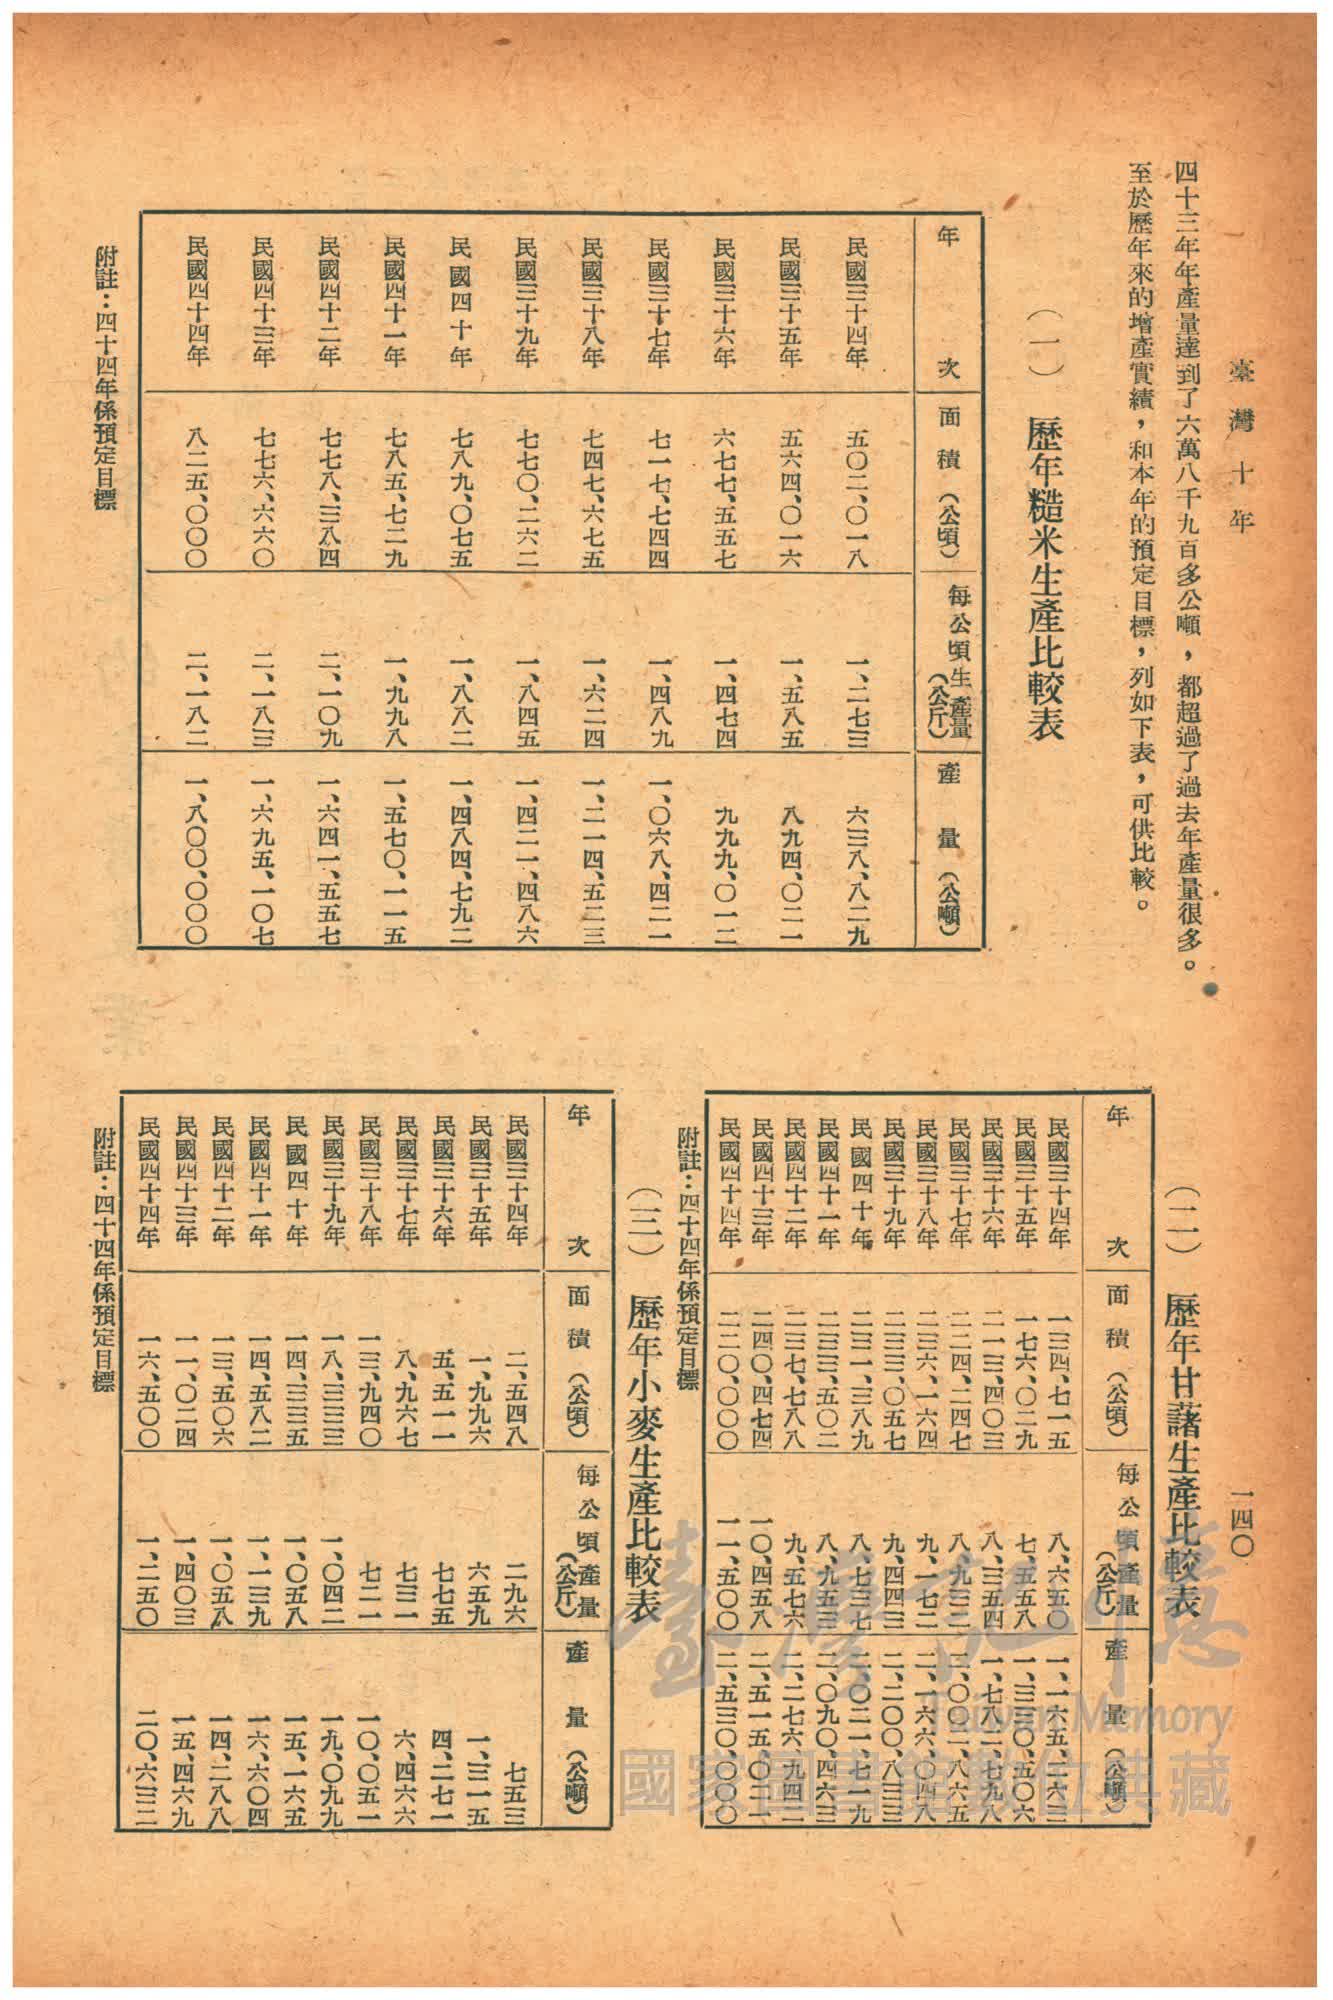 臺灣十年
一四〇
四十三年年產量達到了六萬八千九百多公噸，都超過了過去年產量很多。
至於歷年來的增產實績，和本年的預定目標，列如下表，可供比較。
（一）　歷年糙米生產比較表
年次　面積（公頃）　每公頃生產量（公斤）　產量（公噸）
民國三十四年　五〇二、〇一八　一、二七三　六三八、八二九
民國三十五年　五六四、〇一六　一、五八五　八九四、〇二一
民國三十六年　六七七、五五七　一、四七四　九九九、〇一二
民國三十七年　七一七、七四四　一、四八九　一、〇六八、四二一
民國三十八年　七四七、六七五　一、六二四　一、二一四、五二三
民國三十九年　七七〇、二六二　一、八四五　一、四二一、四八六
民國四十年　七八九、〇七五　一、八八二　一、四八四、七九二
民國四十一年　七八五、七二九　一、九九八　一、五七〇、一一五
民國四十二年　七七八、三八四　二、一〇九　一、六四一、五五七
民國四十三年　七七六、六六〇　二、一八三　一、六九五、一〇七
民國四十四年　八二五、〇〇〇　二、一八二　一、八〇〇、〇〇〇
附註：四十四年係預定目標
（二）　歷年甘藷生產比較表
年次　面積（公頃）　每公頃產量（公斤）　產量（公噸）
民國三十四年　一三四、七一五　八、六五〇　一、一六五、二六三
民國三十五年　一七六、〇二九　七、五五八　一、三三〇、五〇六
民國三十六年　二一三、四〇三　八、三五四　一、七八二、七九八
民國三十七年　二二四、二四七　八、九三二　二、〇〇二、八六五
民國三十八年　二三六、一六四　九、一七二　二、一六六、〇四八
民國三十九年　二三三、〇五七　九、四四三　二、二〇〇、八三三
民國四十年　二三一、三八九　八、七三七　二、〇二一、七二九
民國四十一年　二三三、五〇二　八、九五三　二、〇九〇、四六三
民國四十二年　二三七、七八八　九、五七六　二、二七六、九四二
民國四十三年　二四〇、四七四　一〇、四五八　二、五一五、〇二一
民國四十四年　二二〇、〇〇〇　一一、五〇〇　二、五三〇、〇〇〇
附註：四十四年係預定目標
（三）　歷年小麥生產比較表
年次　面積（公頃）　每公頃產量（公斤）　產量（公噸）
民國三十四年　二、五四八　二九六　七五三
民國三十五年　一、九九六　六五九　一、三一五
民國三十六年　五、五一一　七七五　四、二七一
民國三十七年　八、九六七　七三一　六、四六六
民國三十八年　一三、九四〇　七二一　一〇、〇五一
民國三十九年　一八、三三三　一、〇四二　一九、〇九九
民國四十年　一四、三三五　一、〇五八　一五、一六五
民國四十一年　一四、五八二　一、一三九　一六、六〇四
民國四十二年　一三、五〇六　一、〇五八　一四、二八八
民國四十三年　一一、〇二四　一、四〇三　一五、四六九
民國四十四年　一六、五〇〇　一、二五〇　二〇、六三二
附註：四十四年係預定目標
臺灣記憶
Taiwan Memory
國家圖書館數位典藏